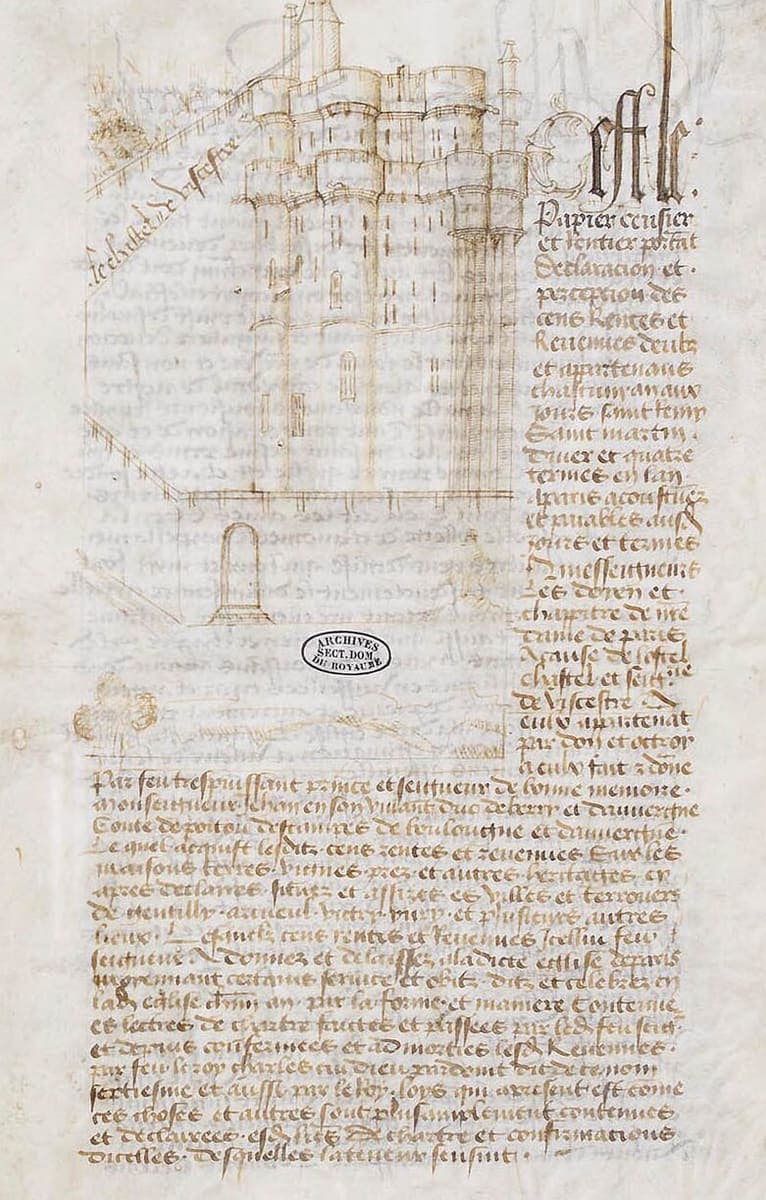 le chastel de vicestre
Cest le
Papier censier
et rentier portāt
declaracion et
percepcion des
cens Rentes et
Revenues deubz
et appartenans
chascun an aux
Jours saint Remy
Saint martin
diver et quatre
termes en lan
aparis acoustumez
et paiables ausd
Jours et termes
A messeigneurs
Les doyen et
chappitre de nre
dame de paris
A cause de lostel
chastel et seigrie
de vicestre A
eulx appartenāt
par don et octroy
a eulx fait z dōne
Par feu trespuissant prince et seigneur de bonne memoire
monseigneur Jehan en son vivant duc de berry et dauvergne
Conte de poitou destampes de boulongne et dauvergne
Le quel acquist lesditz cens rentes et revenues Sur les
maisons terres vignes prez et autres heritages cy
apres declairez situez et assizes es villes et terrouers
de gentilly arcueil victry yvry et plusieurs autres
lieux Lesquelz cens rentes et Revenues Icellui feu
seigneur A donnez et delaissez a ladicte eglise de paris
moyennant certains service et obitz ditz et celebrez en
lad eglise chūn an par la forme et maniere Contenue
es lectres de chartre faictes et passees par led feu seigr
et depuis confermees et admorties lesd Revenues
par feu le roy charles cui dieu pardoint dit de ce nom
septiesme et aussi par le Roy loys qui apresent est come
ces choses et autres sont plus amplement contenues
et declairees esd lres de chartre et confirmacions
dicelles desquelles la teneur sensuit
ARCHIVES
SECT. DOM.
DU ROYAUME